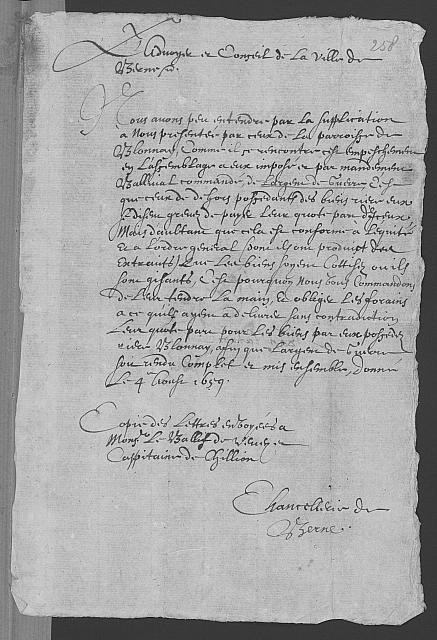 258
L'advoyer et Conseil de La Ville de
Berne
Nous avons peu entendre par La Supplication
a Nous presentee par ceux de La parroisse de
Blonnay, Comme il se rencontre empeschement
en L'assemblage a eux imposé et par mandement
Ballival commandé de L'argent de Guerre, Cest
que ceux de dehors possedants des biens riere eux
de payer Leur quote part d'iceux
Mais d'aultant que cela est conforme a L'equité
et a L'ordre general dont ils ont produit des
extraits, que Les biens soyent Cottisez ou ils
sont gisants, C'est pourquoy Nous vous Commandons
de Leur tendre La main, et obliger Les forains
a ce qu'ils ayent a delivrer sans contradiction
Leur quote part pour Les biens par eux possedez
riere Blonnay, afin que L'argent de Guerre
soit rendu Complet et mis ensemble, Donné
Le 4e Aoust 1659.
Copie des Lettres envoyées a
Monsr Le Ballif de Vevey et
Cappitaine de Chillion
Chancellerie de
Berne.